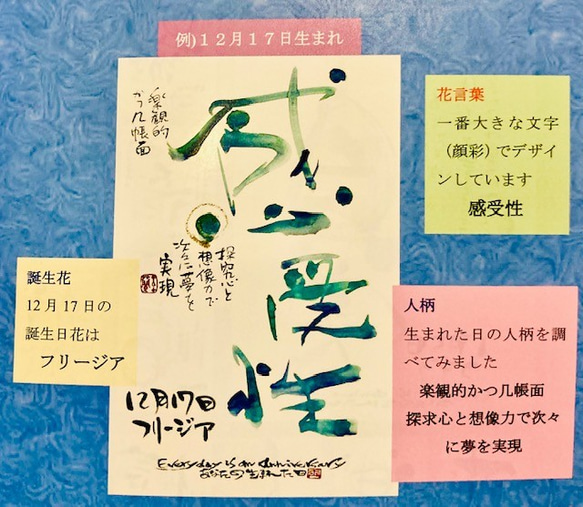 例)12月17日生まれ
楽観的
かつ几帳面
感受性
探究心と
想像力で
次々に夢を
実現
12月17日
フリージア
Everyday is an Anniversary
あなたの生まれた日
花言葉
一番大きな文字
(顔彩)でデザイ
ンしています
感受性
誕生花
12月17日の
誕生日花は
フリージア
人柄
生まれた日の人柄を調
べてみました
楽観的かつ几帳面
探求心と想像力で次々
に夢を実現